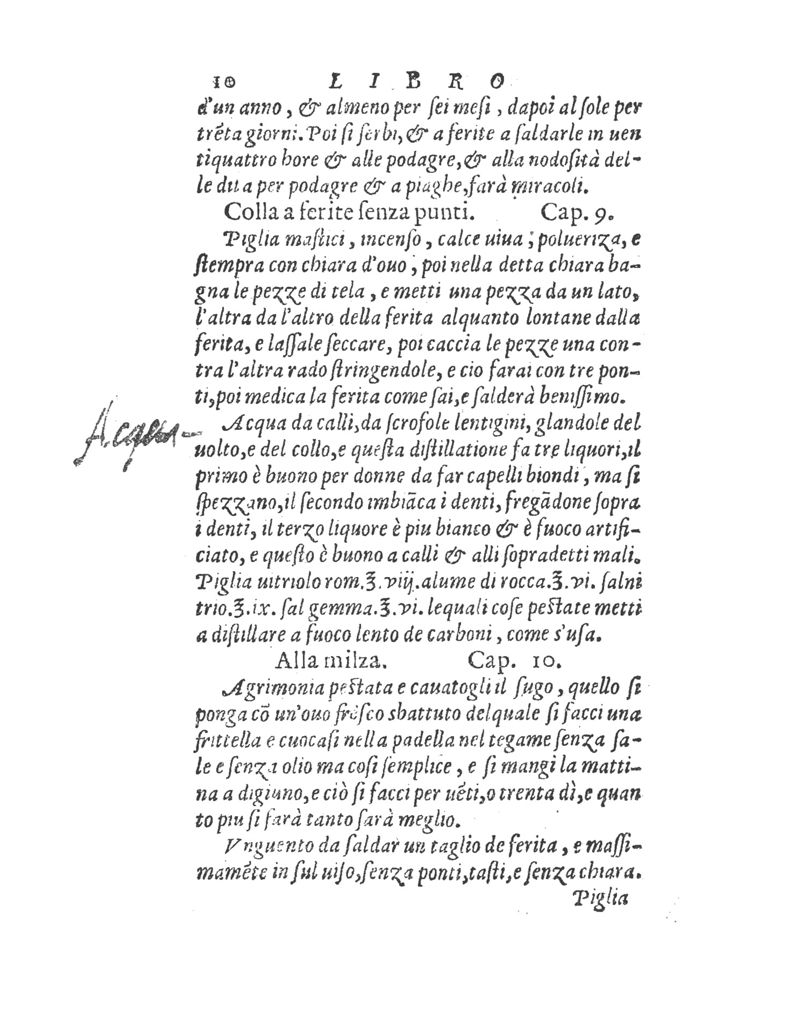 10 LIBRO
d'un anno, & almeno per ſei meſi, dapoi al ſole per
trẽta giorni. Poi ſi ſerbi, & a ferite a ſaldarle in uen
tiquattro hore & alle podagre, & alla nodoſità del-
le dita per podagre & a piaghe, farà miracoli.
Colla a ferite ſenza punti. Cap. 9.
Piglia maſtici, incenſo, calce uiua; polueriza, e
ſtempra con chiara d'ouo, poi nella detta chiara ba-
gna le pezze di tela, e metti una pezza da un lato,
l'altra da l'altro della ferita alquanto lontane dalla
ferita, e laſſale ſeccare, poi caccia le pezze una con-
tra l'altra rado ſtringendole, e cio farai con tre pon-
ti, poi medica la ferita come ſai, e ſalderà beniſſimo.
Acqua-
Acqua da calli, da ſcrofole lentigini, glandole del
uolto, e del collo, e queſta diſtillatione fa tre liquori, il
primo è buono per donne da far capelli biondi, ma ſi
ſpezzano, il ſecondo imbiãca i denti, fregãdone ſopra
i denti, il terzo liquore è piu bianco & è fuoco artifi-
ciato, e queſto è buono a calli & alli ſopradetti mali.
Piglia uitriolo rom. ℥. viij. alume di rocca. ℥. vi. ſalni
trio. ℥. ix. ſal gemma. ℥. vi. lequali coſe peſtate metti
a diſtillare a fuoco lento de carboni, come s'uſa.
Alla milza. Cap. 10.
Agrimonia peſtata e cauatogli il ſugo, quello ſi
ponga cõ un'ouo freſco sbattuto del quale ſi facci una
frittella e cuocaſi nella padella nel tegame ſenza ſa-
le e ſenza olio ma coſi ſemplice, e ſi mangi la matti-
na a digiuno, e ciò ſi facci per uẽti, o trenta dì, e quan
to piu ſi farà tanto ſarà meglio.
Vnguento da ſaldar un taglio de ferita, e maſſi-
mamẽte in ſul uiſo, ſenza ponti, taſti, e ſenza chiara.
Piglia